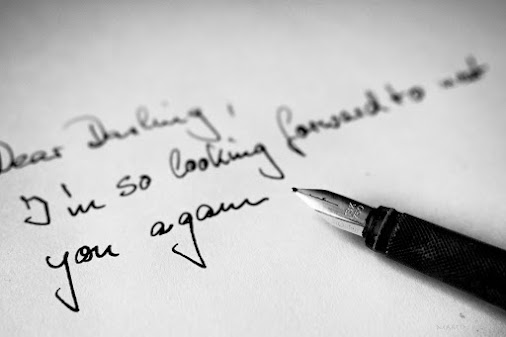 Dear Darling,
I'm so looking forward to
you again